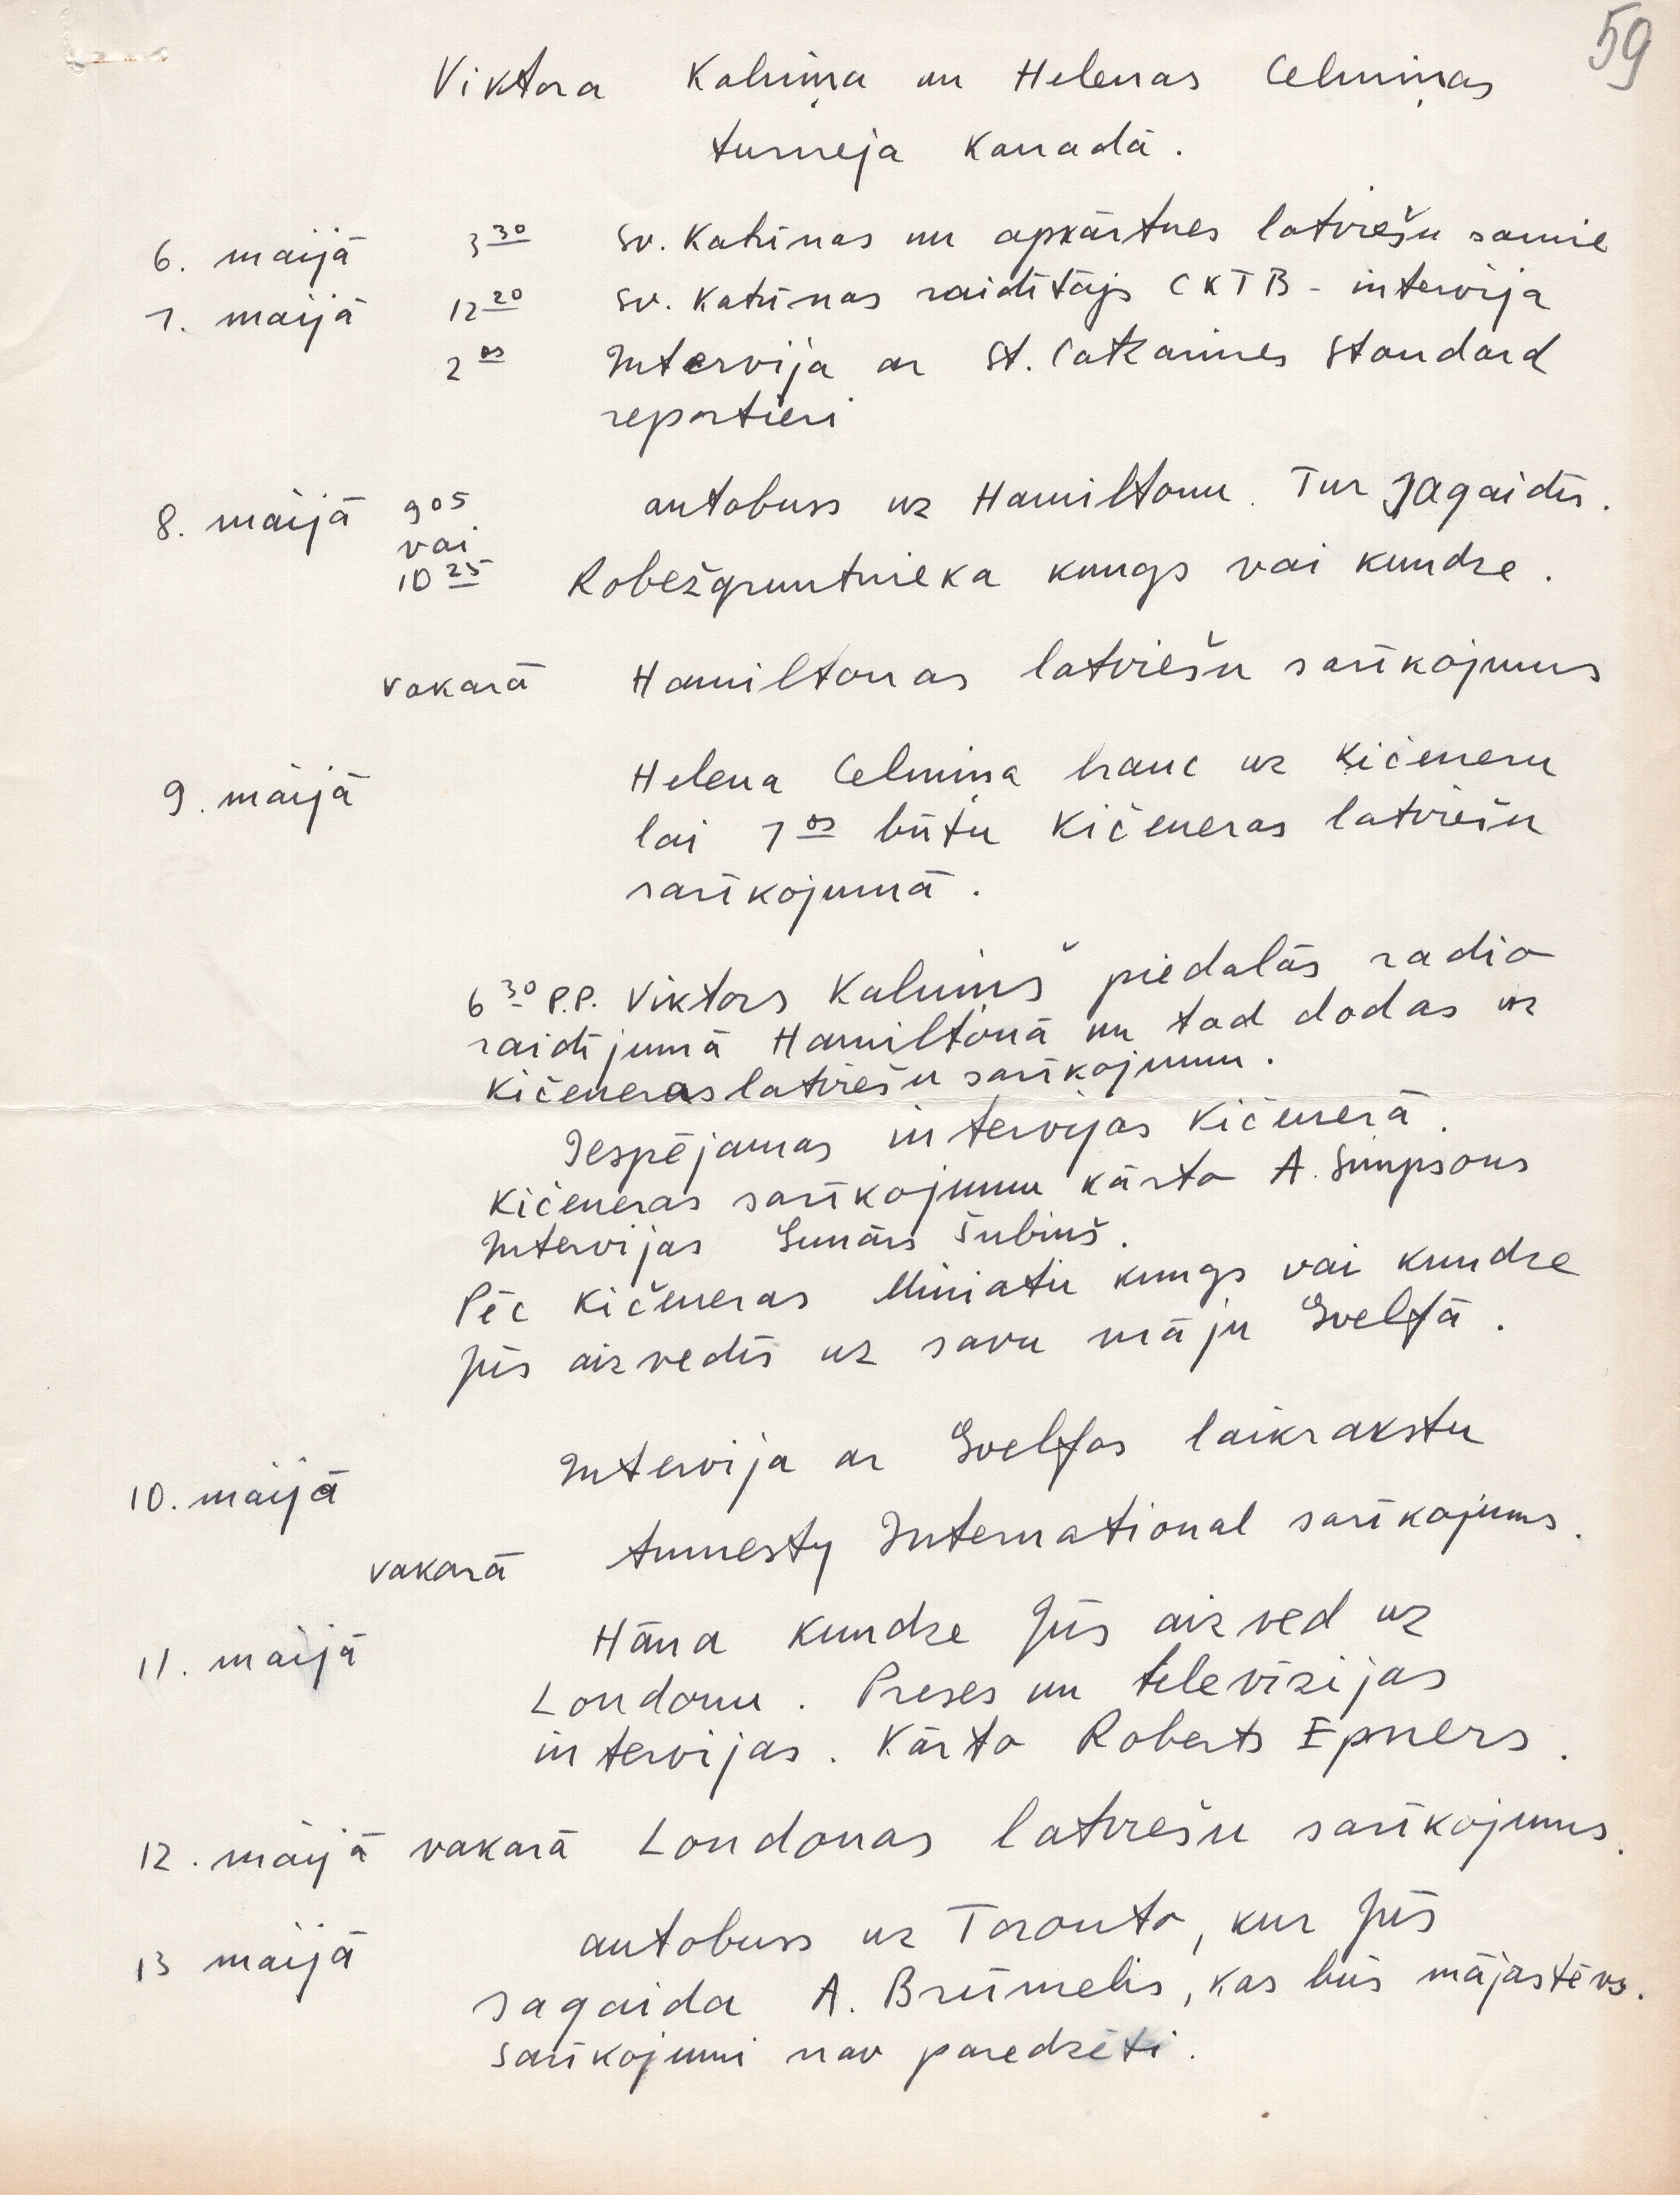 59
Viktora Kalniņa un Helenas Celmiņas
turneja Kanadā.
6. maijā 3 30 Sv. Katrīnas un apkārtnes latviešu saimē
7. maijā 12 20 Sv. Katrīnas raidītājs CKTB - intervija
2 00 Intervija ar St. Catharines Standard
reportieri
8. maijā 9 05 autobuss uz Hamiltonu. Tur sagaidīs.
vai
10 25 Robežgruntnieka kungs vai kundze.
vakarā Hamiltonas latviešu sarīkojums
9. maijā Helena Celmiņa brauc uz Kičeneru
lai 7 00 būtu Kičeneras latviešu
sarīkojumā.
6 30 P.P. Viktors Kalniņš piedalās radio
raidījumā Hamiltonā un tad dodas uz
Kičeneras latviešu sarīkojumu.
Iespējamas intervijas Kičenerā.
Kičeneras sarīkojumu kārto A. Simpsons
Intervijas Gunārs Šubiņš.
Pēc Kičeneras Miniatu kungs vai kundze
Jūs aizvedīs uz savu māju Gvelfā.
10. maijā Intervija ar Gvelfas laikrakstu
vakarā Amnesty International sarīkojums.
11. maijā Hāna kundze Jūs aizved uz
Londonu. Preses un televīzijas
intervijas. Kārto Roberts Epners.
12. maijā vakarā Londonas latviešu sarīkojums.
13 maijā autobuss uz Toronto, kur Jūs
sagaida A. Brūmelis, kas būs mājastēvs.
Sarīkojumi nav paredzēti.